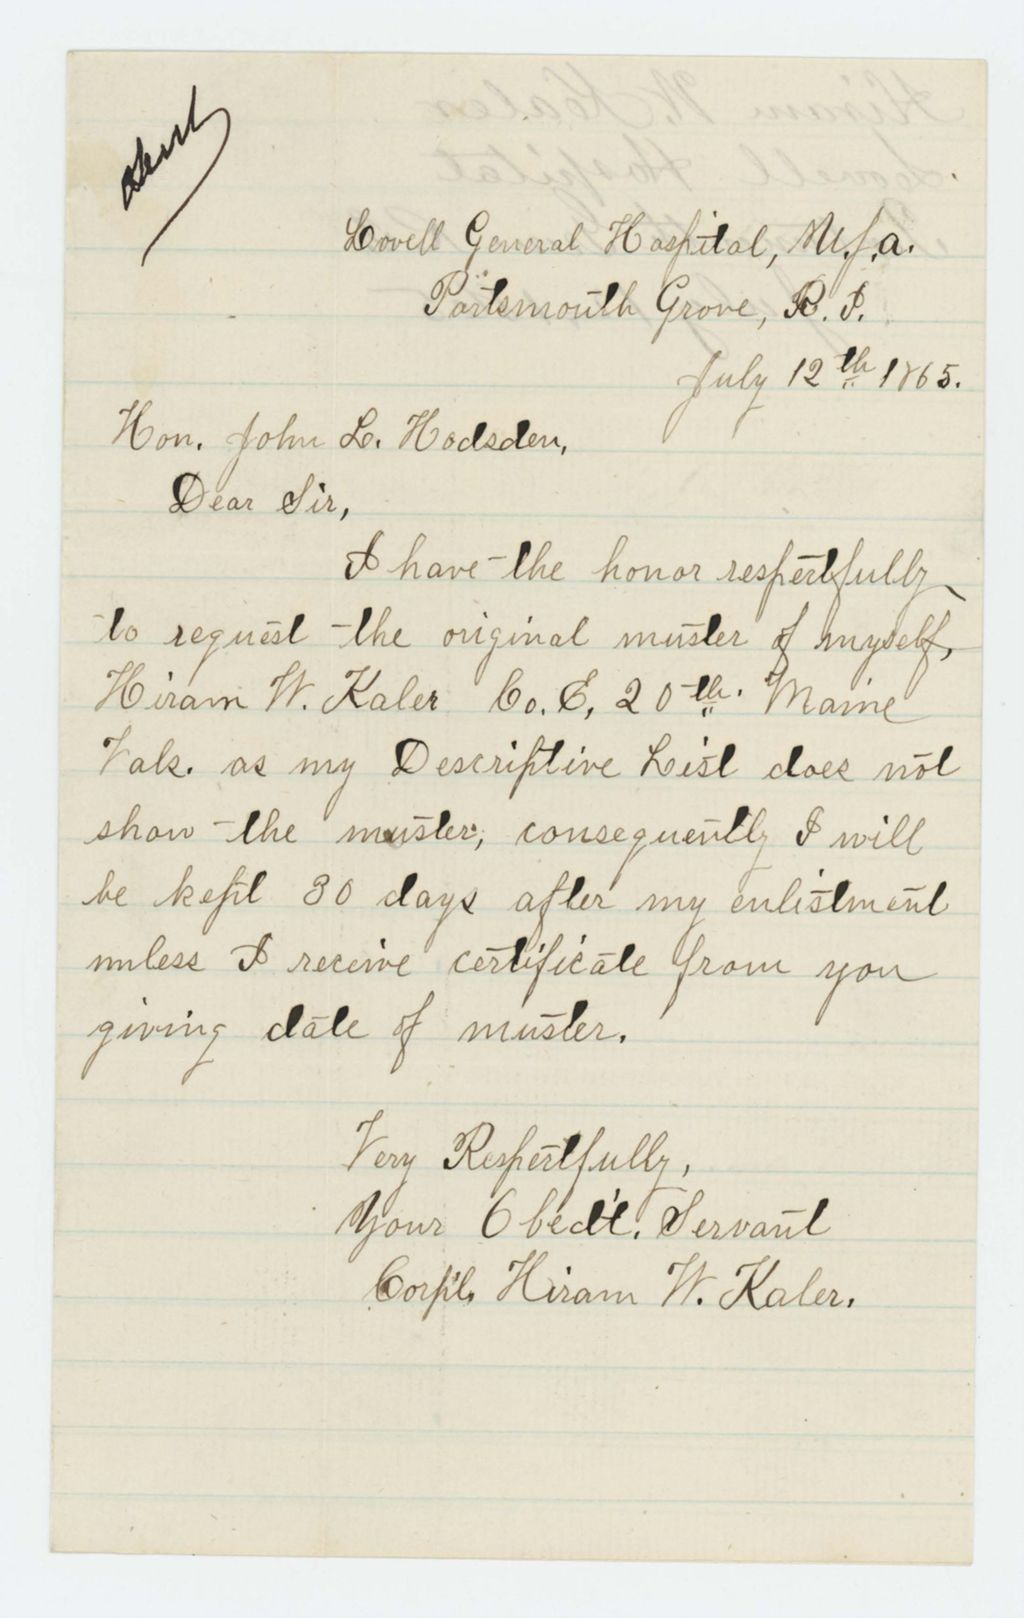 Sent
Lovell General Hospital, U.S.A.
Portsmouth Grove, R.I.
July 12th 1865.
Hon. John L. Hodsden,
Dear Sir,
I have the honor respectfully
to request the original muster of myself,
Hiram W. Kaler Co. E, 20th. Maine
Vols. as my Descriptive List does not
show the muster, consequently I will
be kept 30 days after my enlistment
unless I receive certificate from you
giving date of muster.
Very Respectfully,
Your Obed't. Servant
Corp'l. Hiram W. Kaler.
Hiram W. Kaler
Lovell Hospital